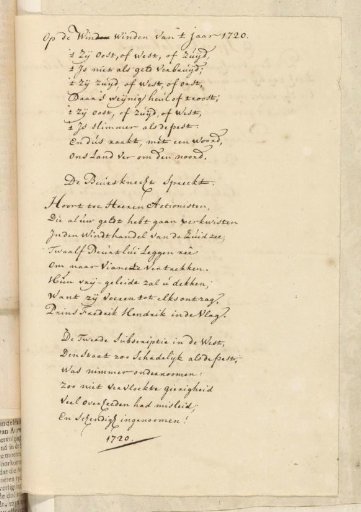 Op de Winden van 't jaar 1720.
't Zij Oost, of West, of Zuijd,
't Is niet als gelt verbruijd;
't Zij Zuijd, of West, of Oost,
Daar's weijnig heul of troost;
't Zij Oost, of Zuijd, of West,
't Is slimmer als de pest.
En dus raakt, met een woord,
Ons Land ver om den noord.
De Beurs knecht Spreekt.
Hoort toe Heeren Actionisten,
Die al uw geldt hebt gaan verkwisten
In den Windthandel van de Zuid zee,
Twaalf Beurtlui Leggen reê
Om naar Vianen te vertrekken.
Hun vrij-geleide zal u dekken,
Want zij voeren tot elks ontzag,
Prins Fredrik Hendrik in de Vlag.
De Tweede Subscriptie in de West,
Den Staat zoo Schadelijk als de pest,
Was nimmer ondernoomen
Zoo niet vervloekte gierigheid
Veel Overheeden had misleid,
En Schendig ingenoomen!
1720.